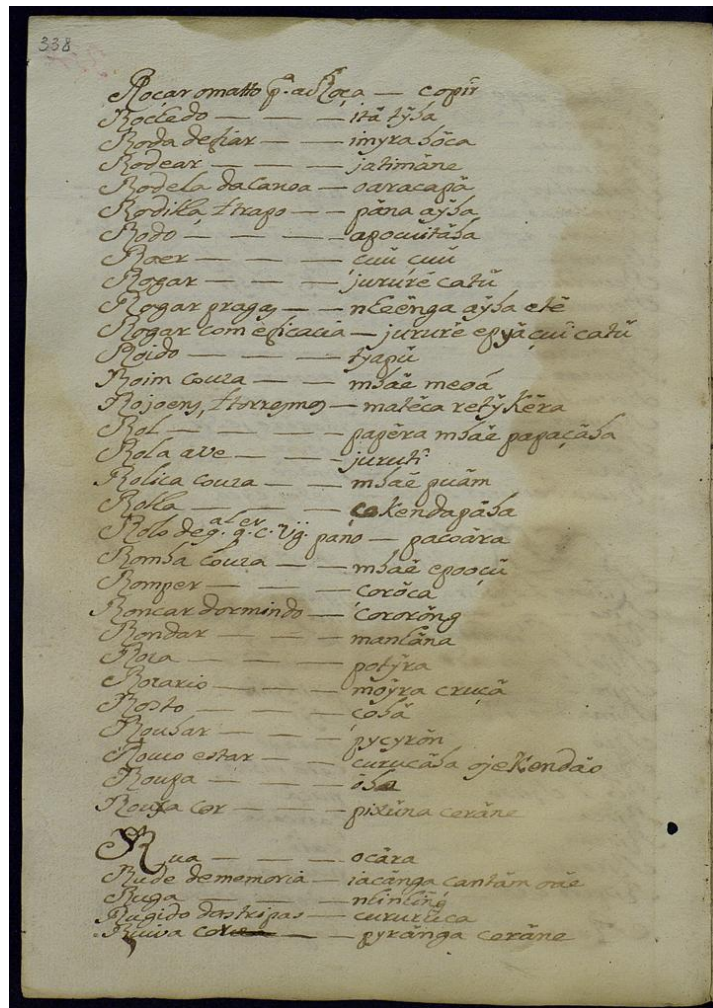 338
Roçar o matto p.ª a Roça — copir
Rochedo — — — itá tỹba
Roda de fiar — — imyra bóca
Rodear — — — jatimãne
Rodela da Canoa — oaracapã
Rodilha, l trapo — — pãna aỹba
Rodo — — — — apocuitába
Roer — — — — çuũ çuũ
Rogar — — — jururé catũ
Rogar pragas — — nheẽnga aỹba etẽ
Rogar com eficacia — jururẽ epyã çuî catũ
Roido — — — — tyapũ
Roim couza — — — mbaẽ meoá
Rojoens, l torresmos — matẽca retỹkẽra
Rol — — — — papẽra mbaẽ papaçába
Rola ave — — — jurutî
Rolica couza — — — mbaẽ puãm
Rolha — — — — çokendapába
Rolo de q. q. c. vg. pano — pacoãra
Romba couza — — mbaẽ epooçũ
Romper — — — çorõca
Roncar dormindo — çororõng
Rondar — — — manhãna
Roza — — — — potỹra
Rozario — — — moỹra cruçã
Rosto — — — — çobã
Roubar — — — pycyrõn
Rouco estar — — curucába ojekendão
Roupa — — — — õba
Rouxa cor — — — pixũna cerãne
Rua — — — — ocãra
Rude de memoria — iacãnga cantãm oãe
Ruga — — — — nhinhĩng
Rugido das tripas — cururũca
Ruiva — — pyrãnga cerãne